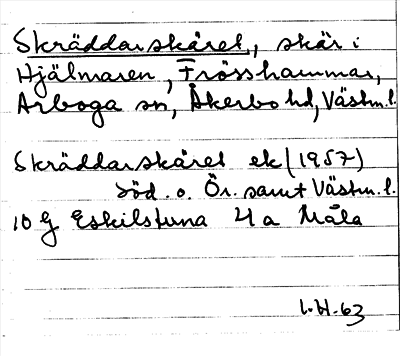 Skräddarskäret, skär i
Hjälmaren, Frösshammar,
Arboga sn, Åkerbo hd, Västm. l.
Skräddarskäret ek (1957)
Söd. o. Ör. samt Västm. l.
10 G Eskilstuna 4 a Måla
L.H-63